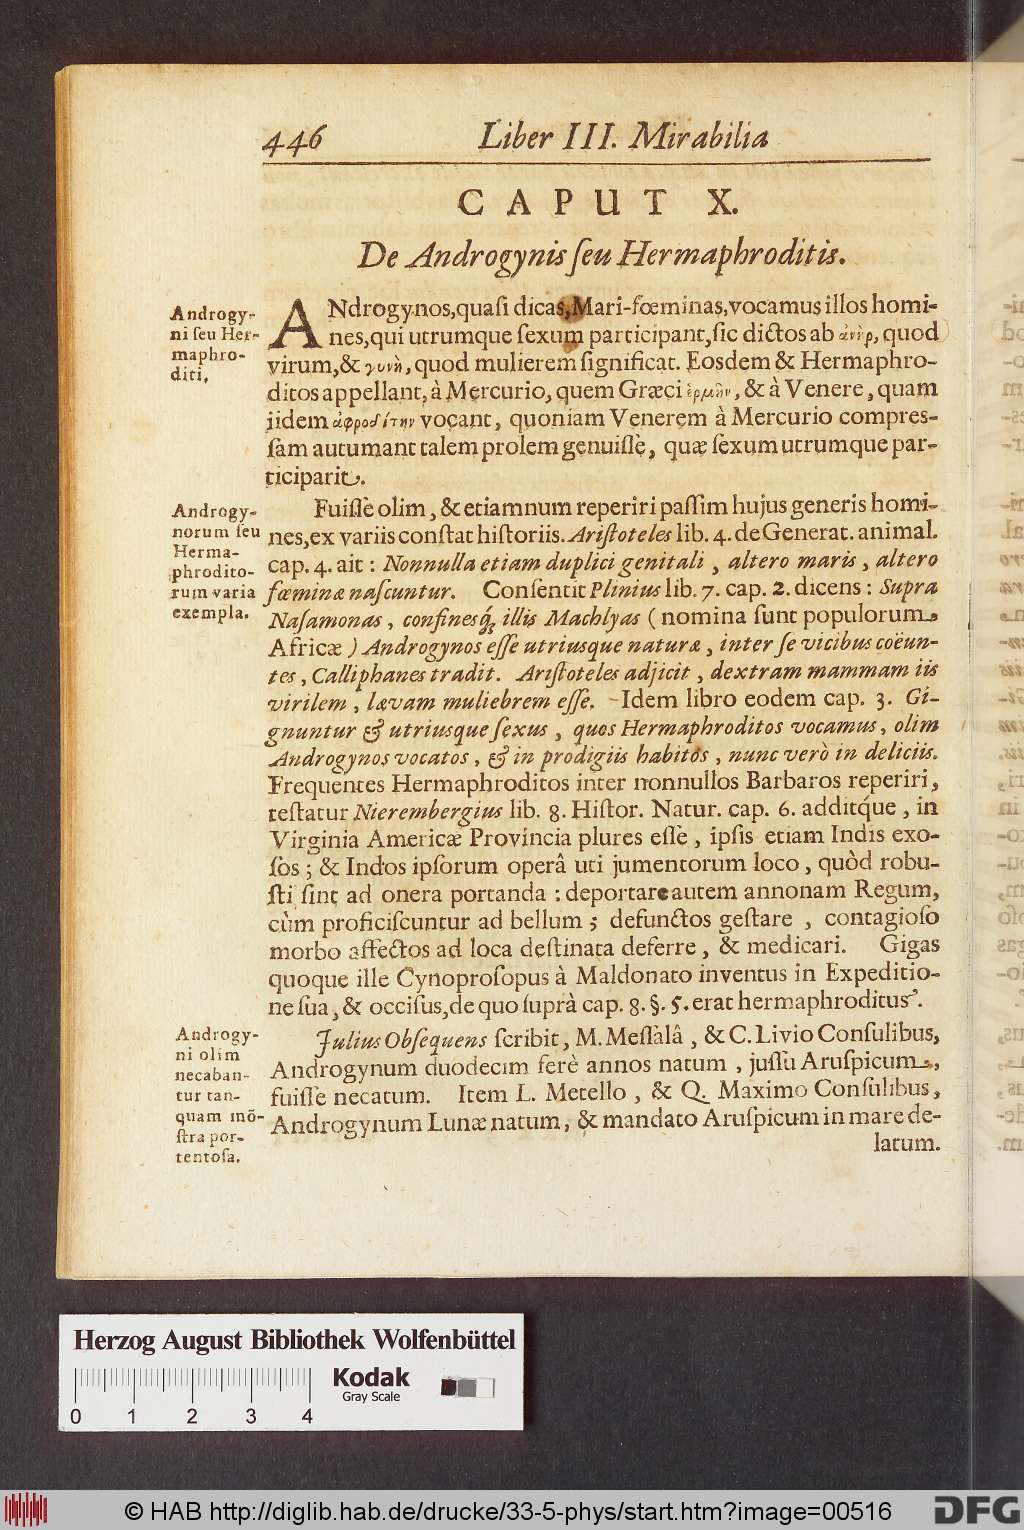 446 Liber III. Mirabilia
CAPUT X.
De Androgynis ſeu Hermaphroditis.
Androgy-
ni ſeu Her-
maphro-
diti.
ANdrogynos, quaſi dicas, Mari-fœminas, vocamus illos homi-
nes, qui utrumque ſexum participant, ſic dictos ab ἀνὴρ, quod
virum, & γυνὴ, quod mulierem ſignificat. Eosdem & Hermaphro-
ditos appellant, à Mercurio, quem Græci ἑρμῆν, & à Venere, quam
iidem ἀφροδίτην vocant, quoniam Venerem à Mercurio compreſ-
ſam autumant talem prolem genuiſſe, quæ ſexum utrumque par-
ticiparit.
Androgy-
norum ſeu
Herma-
phrodito-
rum varia
exempla.
Fuiſſe olim, & etiamnum reperiri paſſim hujus generis homi-
nes, ex variis conſtat hiſtoriis. Ariſtoteles lib. 4. de Generat. animal.
cap. 4. ait: Nonnulla etiam duplici genitali, altero maris, altero
fœminæ naſcuntur. Conſentit Plinius lib. 7. cap. 2. dicens: Supra
Naſamonas, confinesq́; illis Machlyas (nomina ſunt populorum
Africæ) Androgynos eſſe utriusque naturæ, inter ſe vicibus coëun-
tes, Calliphanes tradit. Ariſtoteles adjicit, dextram mammam iis
virilem, lævam muliebrem eſſe. Idem libro eodem cap. 3. Gi-
gnuntur & utriusque ſexus, quos Hermaphroditos vocamus, olim
Androgynos vocatos, & in prodigiis habitos, nunc verò in deliciis.
Frequentes Hermaphroditos inter nonnullos Barbaros reperiri,
teſtatur Nierembergius lib. 8. Hiſtor. Natur. cap. 6. additq́ue, in
Virginia Americæ Provincia plures eſſe, ipſis etiam Indis exo-
ſos; & Indos ipſorum operâ uti jumentorum loco, quòd robu-
ſti ſint ad onera portanda: deportare autem annonam Regum,
cùm proficiſcuntur ad bellum; defunctos geſtare, contagioſo
morbo affectos ad loca deſtinata deferre, & medicari. Gigas
quoque ille Cynoproſopus à Maldonato inventus in Expeditio-
ne ſua, & occiſus, de quo ſuprà cap. 8. §. 5. erat hermaphroditus.
Androgy-
ni olim
necaban-
tur tan-
quam mõ-
ſtra por-
tentoſa.
Julius Obſequens ſcribit, M. Meſſalâ, & C. Livio Conſulibus,
Androgynum duodecim ferè annos natum, juſſu Aruſpicum,
fuiſſe necatum. Item L. Metello, & Q. Maximo Conſulibus,
Androgynum Lunæ natum, & mandato Aruſpicum in mare de-
latum.
Herzog August Bibliothek Wolfenbüttel
Kodak
Gray Scale
0 1 2 3 4
© HAB http://diglib.hab.de/drucke/33-5-phys/start.htm?image=00516
DFG